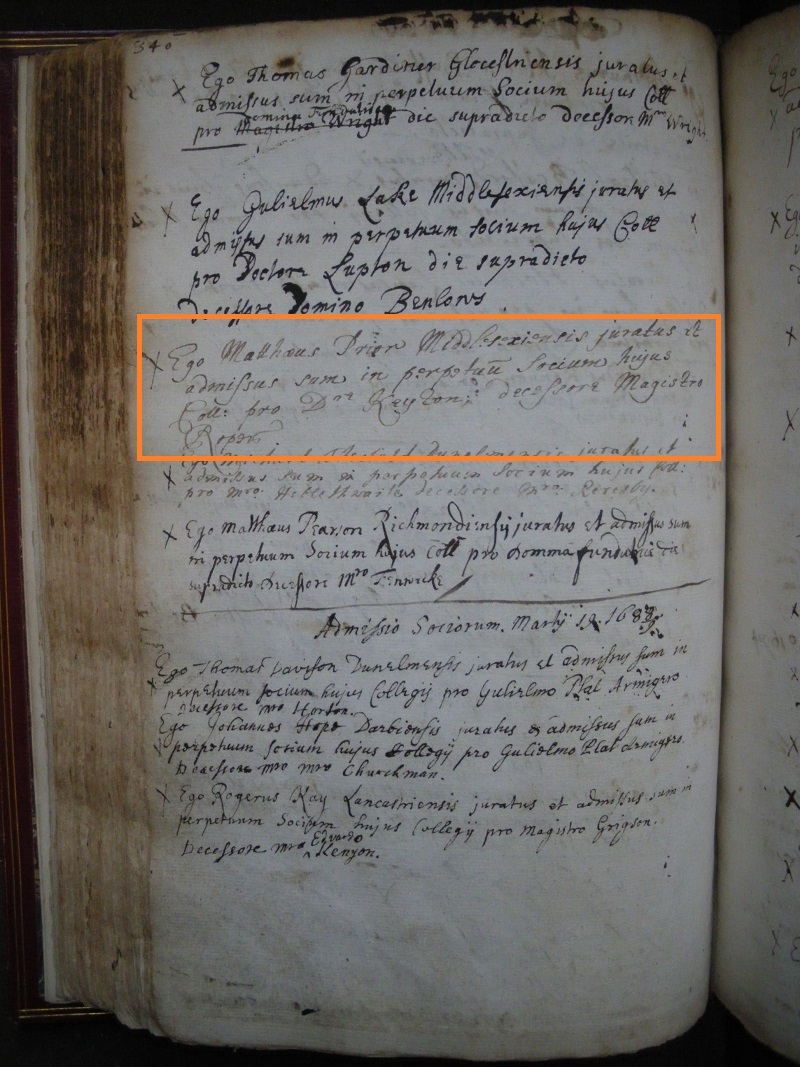 340
Ego Thomas Gardiner Glocestriensis juratus et
admissus sum in perpetuum Socium hujus Coll
Domina Fundatrice
pro Magistro Wright die supradicto decessore Mro Wright
Ego Gulielmus Lake Middlesexiensis juratus et
admissus sum in perpetuum socium hujus Coll
pro Doctore Lupton die supradicto
Decessore Domino Benlows
Ego Matthæus Prior Middlesexiensis juratus et
admissus sum in perpetuū Socium hujus
Coll: pro Dre Keyton; decessore Magistro
Roper
Ego Dunelmensis juratus et
admissus sum in perpetuum Socium hujus Coll:
pro mro. Heblethwaite decessore mro.
Ego Matthæus Pearson Richmondiensis juratus et admissus sum
in perpetuum Socium hujus Coll pro Domina fundatrice die
supradicto Decessore Mro Fenwicke
Admissio Sociorum. Martij 19. 168
Ego Thomas Davison Dunelmensis juratus et admissus sum in
perpetuum socium hujus Collegij pro Gulielmo Plat Armigero
Decessore mro Horton.
Ego Johannes Hope Darbiensis juratus & admissus sum in
perpetuum socium hujus Collegij pro Gulielmo Plat Armigero
Decessore mro mro Churchman.
Ego Rogerus Kay Lancastriensis juratus et admissus sum in
perpetuum Socium hujus Collegij pro Magistro Grigson.
Edvardo
Decessore mro Kenyon.